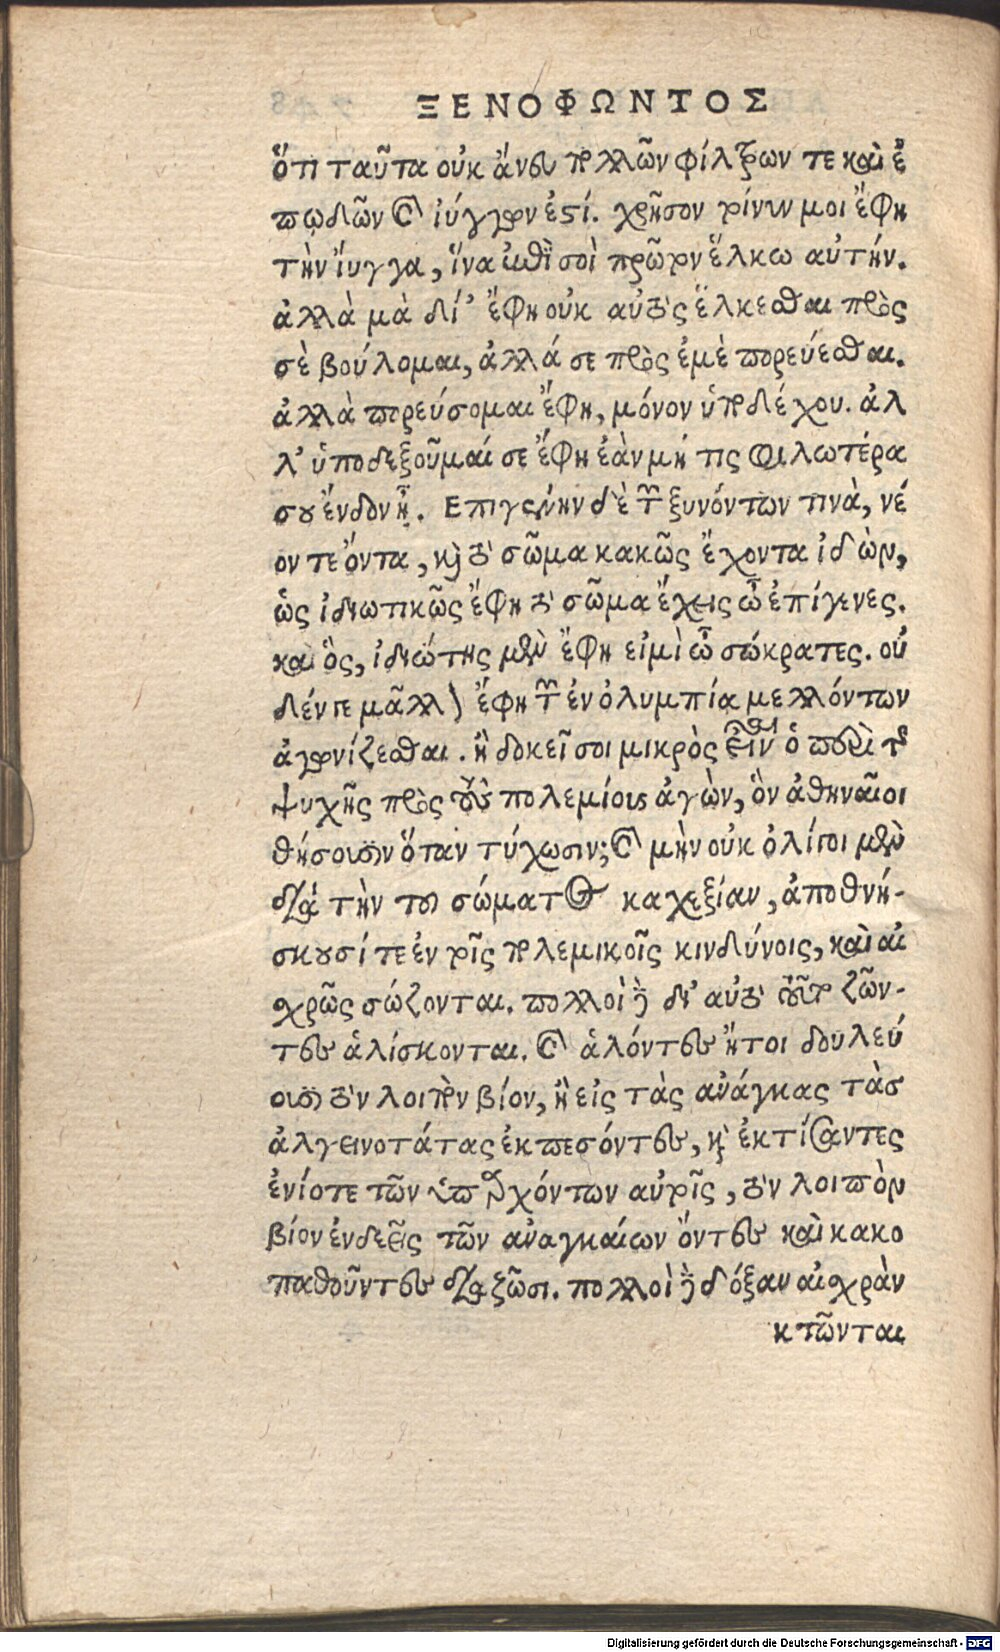 ΞΕΝΟΦΩΝΤΟΣ
ὅτι ταῦτα οὐκ ἄνευ πολλῶν φίλτρων τε καὶ ἐ
πῳδῶν καὶ ἰύγγων ἐστί. χρῆσον τοίνυν μοι ἔφη
τὴν ἴυγγα, ἵνα ἐπὶ σοὶ πρῶτον ἕλκω αὐτήν.
ἀλλὰ μὰ δί' ἔφη οὐκ αὐτὸς ἕλκεσθαι πρὸς
σὲ βούλομαι, ἀλλά σε πρὸς ἐμὲ πορεύεσθαι.
ἀλλὰ πορεύσομαι ἔφη, μόνον ὑποδέχου. ἀλ
λ' ὑποδεξοῦμαί σε ἔφη ἐὰν μή τις φιλωτέρα
σου ἔνδον ᾖ. Επιγένην δὲ τῶν ξυνόντων τινὰ, νέ
ον τε ὄντα, καὶ τὸ σῶμα κακῶς ἔχοντα ἰδὼν,
ὡς ἰδιωτικῶς ἔφη τὸ σῶμα ἔχεις ὦ ἐπίγενες.
καὶ ὃς, ἰδιώτης μὲν ἔφη εἰμὶ ὦ σώκρατες. οὐ
δέν γε μᾶλλον ἔφη τῶν ἐν ὀλυμπίᾳ μελλόντων
ἀγωνίζεσθαι. ἢ δοκεῖ σοι μικρὸς εἶναι ὁ περὶ τῆς
ψυχῆς πρὸς τοὺς πολεμίους ἀγὼν, ὃν ἀθηναῖοι
θήσουσιν ὅταν τύχωσιν; καὶ μὴν οὐκ ὀλίγοι μὲν
διὰ τὴν τοῦ σώματος καχεξίαν, ἀποθνή-
σκουσί τε ἐν τοῖς πολεμικοῖς κινδύνοις, καὶ αἰ
σχρῶς σώζονται. πολλοὶ δὲ δι' αὐτὸ τοῦτο ζῶν-
τες ἁλίσκονται. καὶ ἁλόντες ἤτοι δουλεύ
ουσι τὸν λοιπὸν βίον, ἢ εἰς τὰς ἀνάγκας τὰς
ἀλγεινοτάτας ἐκπεσόντες, καὶ ἐκτίσαντες
ἐνίοτε τῶν ὑπαρχόντων αὐτοῖς, τὸν λοιπὸν
βίον ἐνδεεῖς τῶν ἀναγκαίων ὄντες καὶ κακο
παθοῦντες διαζῶσι. πολλοὶ δὲ δόξαν αἰσχρὰν
κτῶνται
Digitalisierung gefördert durch die Deutsche Forschungsgemeinschaft - DFG